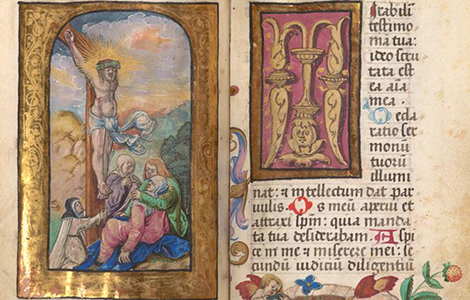 Mirabiliā
testimo
nia tua:
ideo scru
tata est
ea aīa
mea.
Decla
ratio ser
monū
tuorū
illumi
nat: & intellectum dat par
vulis. Os meū aperui et
attraxi spm̄: quia manda
ta tua desiderabam. Aspi
ce in me & miserere mei: se
cundū iudiciū diligentiū